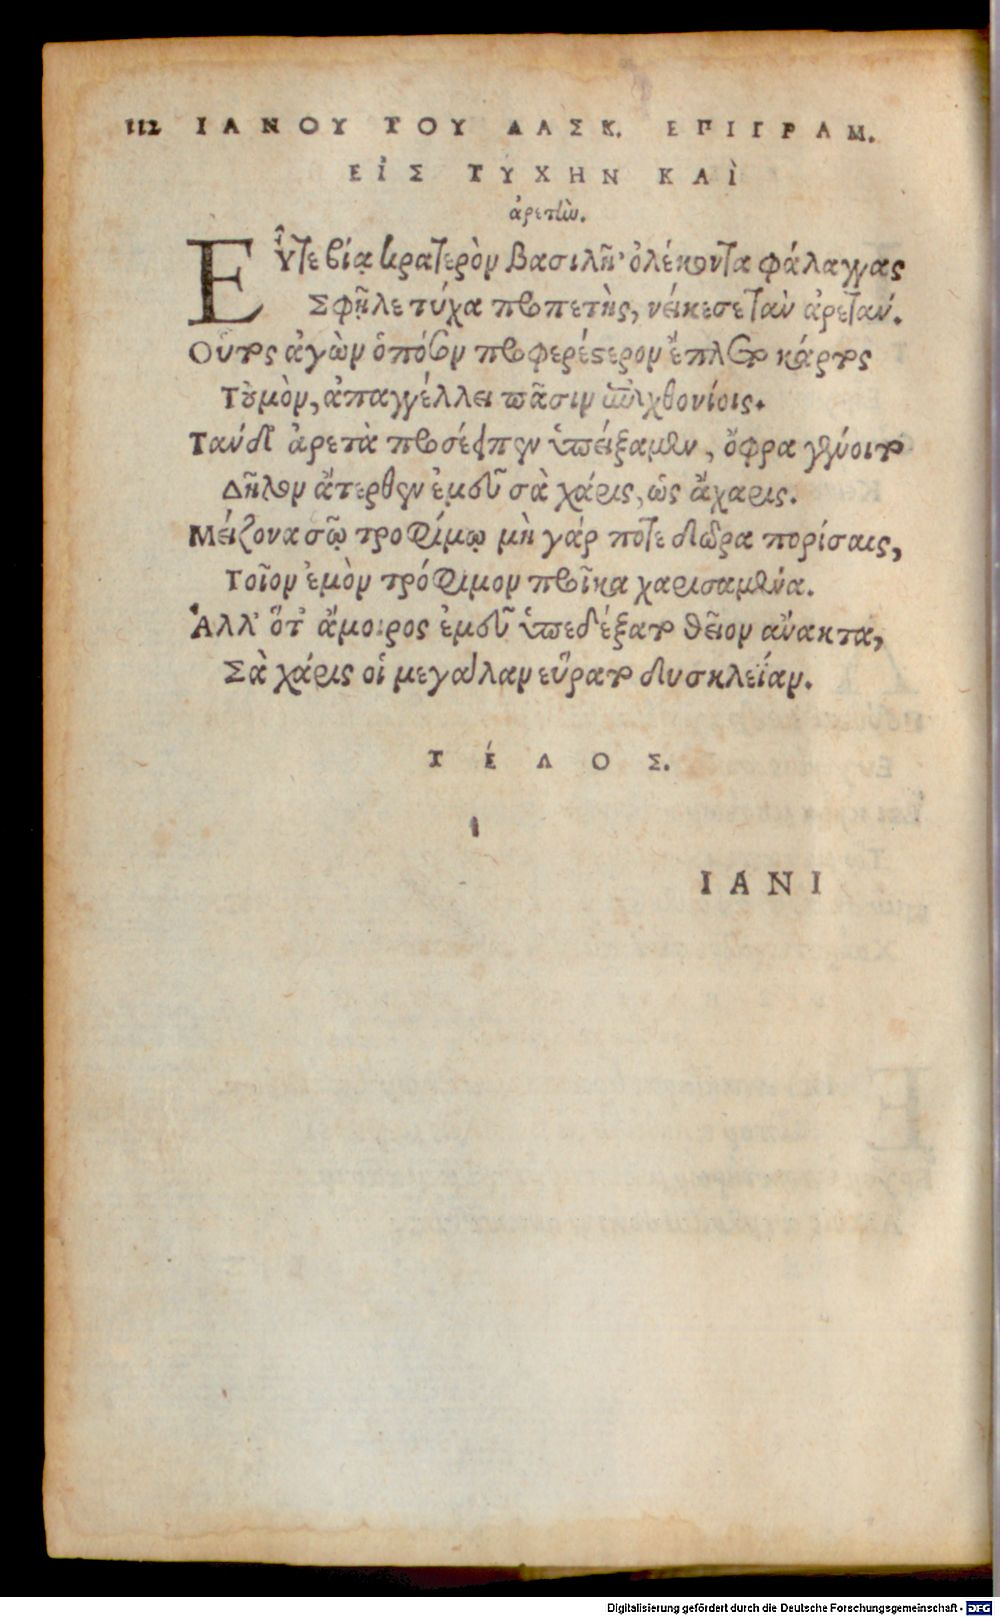 112 ΙΑΝΟΥ ΤΟΥ ΛΑΣΚ. ΕΠΙΓΡΑΜ.
ΕἰΣ ΤΎΧΗΝ ΚΑῚ
ἀρετὴν.
Εὖτε βίᾳ κρατερὸν βασιλῆ' ὀλέκοντα φάλαγγας
Σφῆλε τύχα προπετὴς, νείκεσε τὰν ἀρετάν.
Οὗτος ἀγὼν ὁπόσον προφερέστερον ἔπλετο κάρτος
Τοὐμὸν, ἀπαγγέλλει πᾶσιν ἐπιχθονίοις.
Τανδὶ ἀρετὰ προσέειπεν ὑπείξαμεν, ὄφρα γένοιτο
Δῆλον ἄτερθεν ἐμοῦ σὰ χάρις, ὡς ἄχαρις.
Μείζονα σῷ τροφίμῳ μὴ γάρ ποτε δῶρα πορίσαις,
Τοῖον ἐμὸν τρόφιμον προῖκα χαρισαμένα.
Ἀλλ' ὅτ' ἄμοιρος ἐμοῦ ὑπεδέξατο θεῖον ἄνακτα,
Σὰ χάρις οἱ μεγάλαν εὕρατο δυσκλεΐαν.
ΤΈΛΟΣ.
IANI
Digitalisierung gefördert durch die Deutsche Forschungsgemeinschaft - DFG